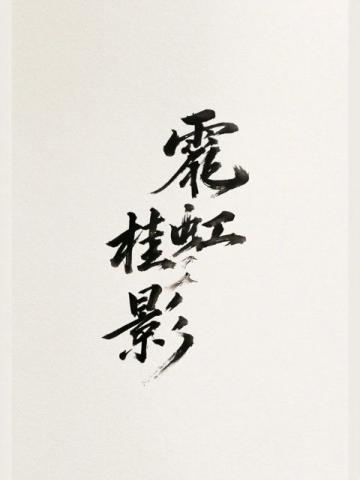 霓虹
桂影